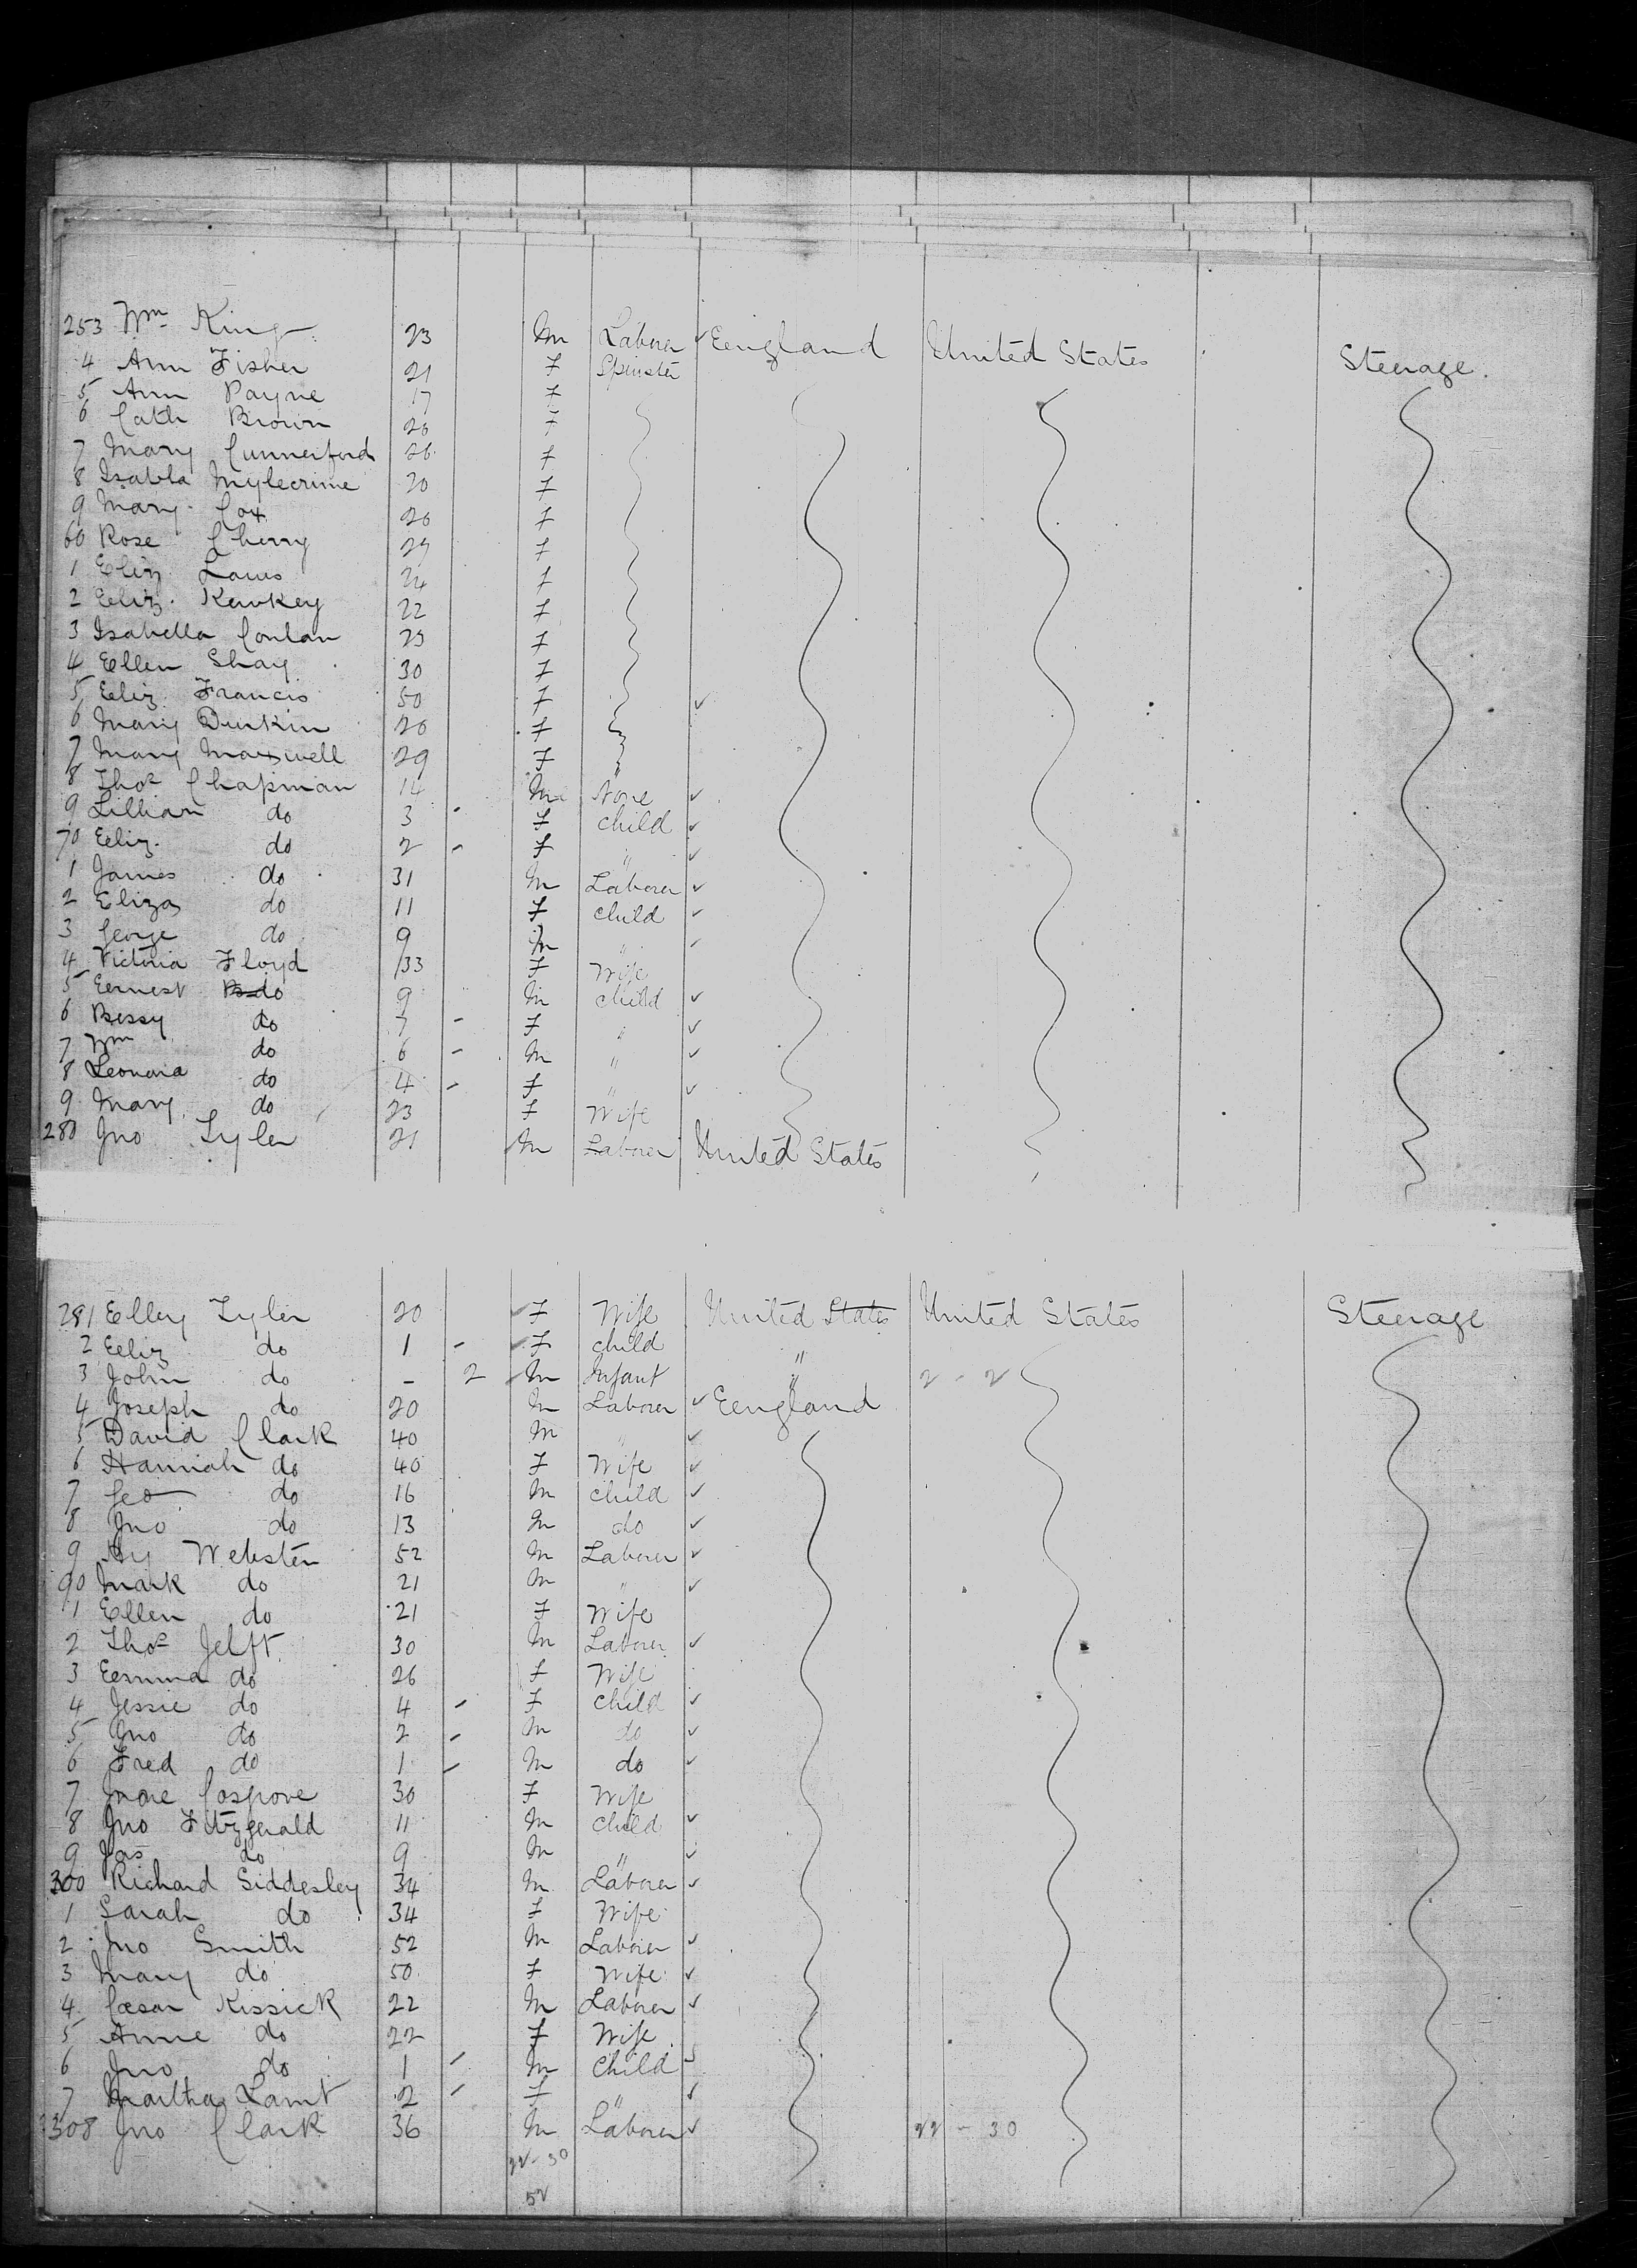 253 Wm King 23 M Laborer ✓ England United States Steerage.
4 Ann Fisher 21 F Spinster
5 Ann Payne 17 F
6 Cath Brown 20 F
7 Mary Cunnerford 26 F
8 Isabla Mylecrine 20 F
9 Mary Cox 20 F
60 Rose Cherry 29 F
1 Eliz Laws 24 F
2 Eliz. Kewkey 22 F
3 Isabella Conlan 25 F
4 Ellen Shay 30 F
5 Eliz Francis 50 F ✓
6 Mary Durkin 20 F
7 Mary Maxwell 29 F
8 Thos Chapman 14 M None ✓
9 Lillian do 3 - F child ✓
70 Eliz. do 2 - F " ✓
1 James do 31 M Laborer ✓
2 Eliza do 11 F child ✓
3 George do 9 M " ✓
4 Victoria Floyd 33 F Wife
5 Ernest do 9 M child ✓
6 Bessy do 7 - F " ✓
7 Wm do 6 - M " ✓
8 Leonora do 4 - F ✓
9 Mary do 23 F Wife
280 Jno Tyler 21 M Laborer United States
281 Elley Tyler 20 ✓ F Wife United States United States Steerage
2 Eliz do 1 - ✓ F child "
3 John do - 2 M Infant " 2 - 2
4 Joseph do 20 M Laborer ✓ England
5 David Clark 40 M " ✓
6 Hannah do 40 F Wife ✓
7 Geo do 16 M child ✓
8 Jno do 13 M do ✓
9 Hy Webster 52 M Laborer ✓
90 Mark do 21 M " ✓
1 Ellen do 21 F Wife
2 Thos Jelft 30 M Laborer ✓
3 Emma do 26 F Wife
4 Jessie do 4 - F child ✓
5 Jno do 2 - M do ✓
6 Fred do 1 - M do ✓
7 Cosgrove 30 F Wife
8 Jno Fitzgerald 11 M child ✓
9 Jas do 9 M " ✓
300 Richard Siddesley 34 M Laborer ✓
1 Sarah do 34 F Wife
2 Jno Smith 52 M Laborer ✓
3 Mary do 50 F Wife ✓
4 Cæsar Kissick 22 M Laborer ✓
5 Annie do 22 F Wife
6 Jno do 1 - M Child ✓
7 Martha Lamt 2 - F " ✓
308 Jno Clark 36 M Laborer ✓ 22 - 30
22 - 30
52